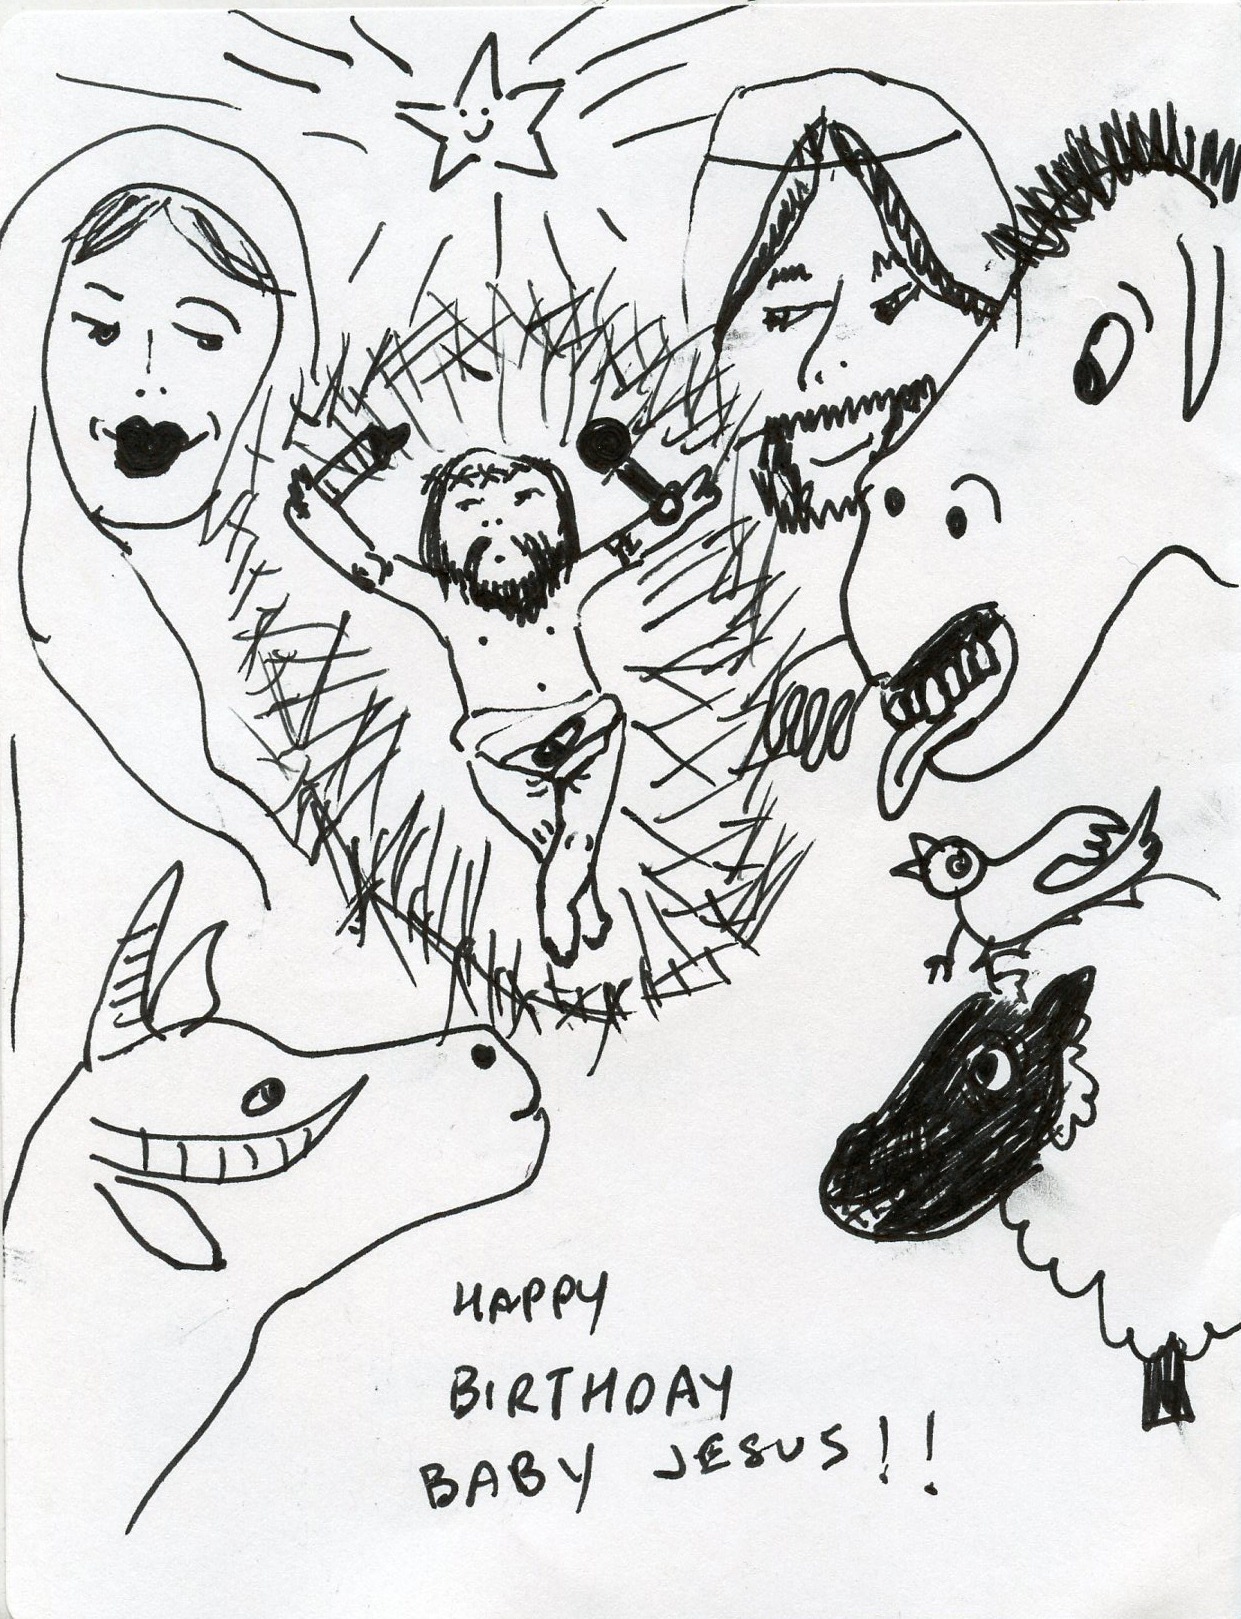 HAPPY
BIRTHDAY
BABY JESUS!!